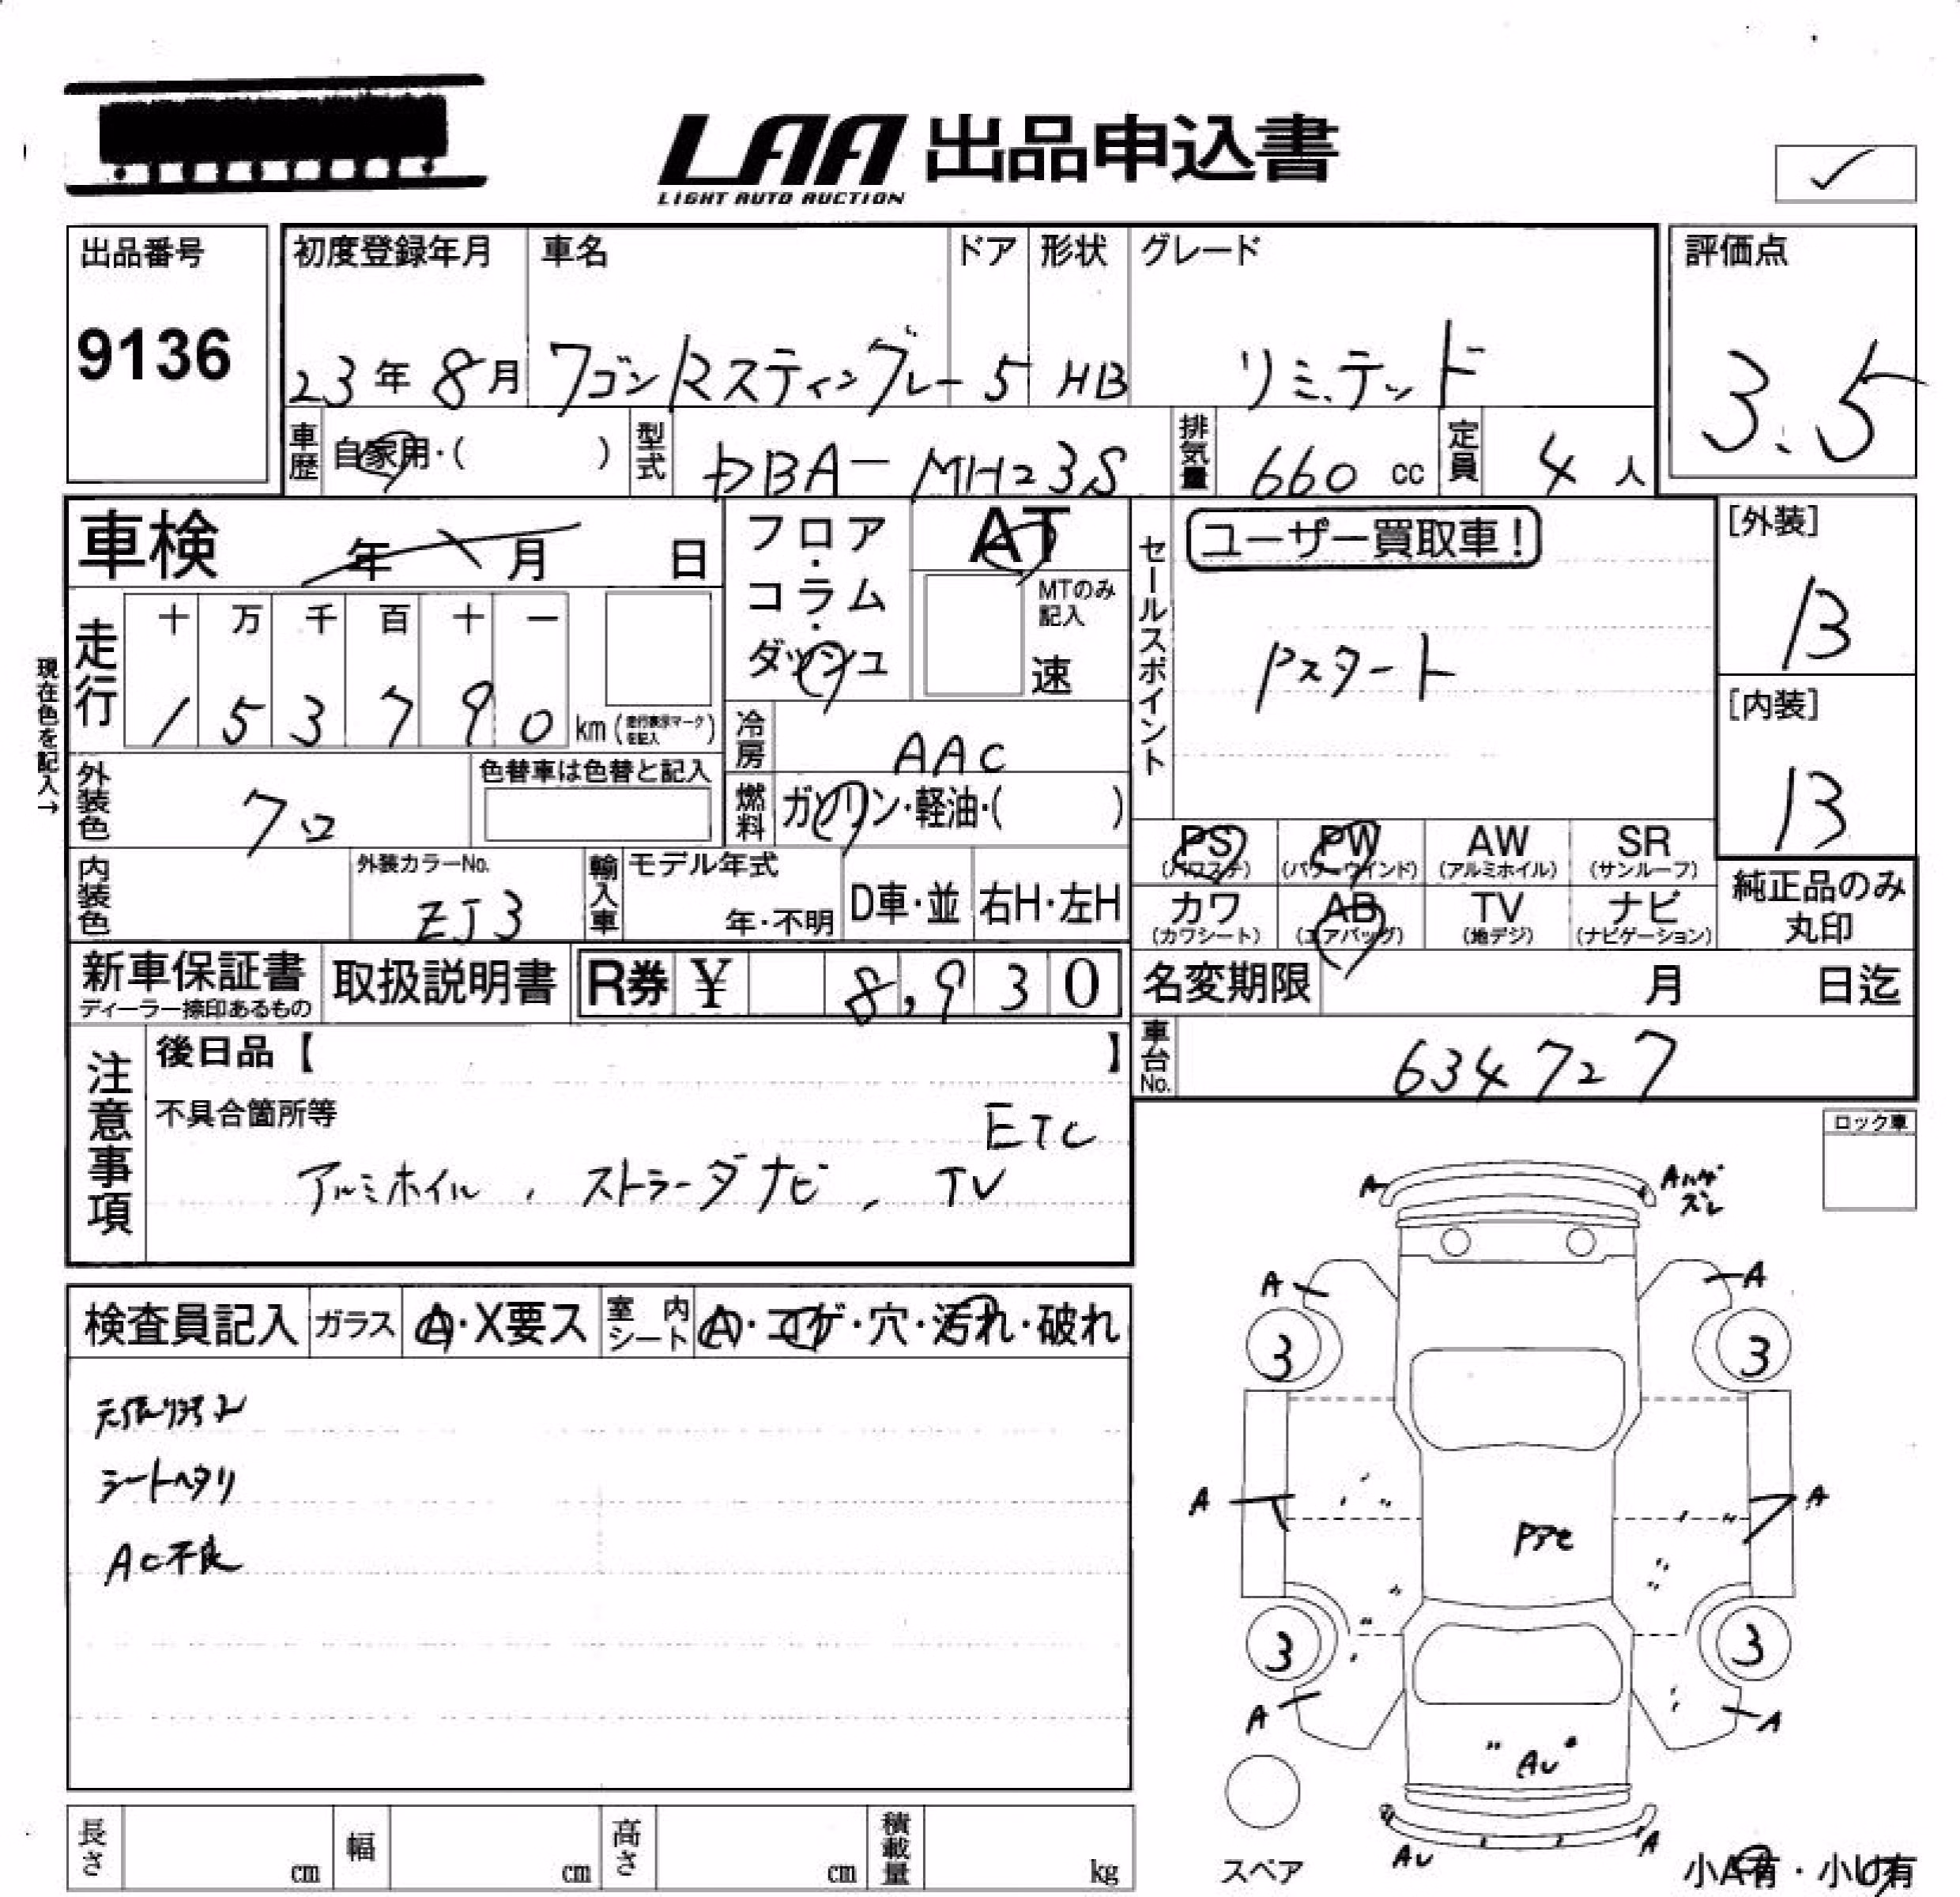 LAA 出品申込書
LIGHT AUTO AUCTION
出品番号
9136
初度登録年月
23年 8月
車名
ワゴンRスティングレー
ドア
5
形状
HB
グレード
リミテッド
評価点
3.5
車歴
自家用・( )
型式
DBA-MH23S
排気量
660 cc
定員
4 人
車検 年 月 日
走行
十 万 千 百 十 一
1 5 3 7 9 0 km (走行表示マークを記入)
現在色を記入→
外装色
クロ
色替車は色替と記入
内装色
外装カラーNo.
ZJ3
フロア・コラム・ダッシュ
AT
MTのみ記入
速
冷房
AAC
燃料
ガソリン・軽油・( )
輸入車
モデル年式
年・不明
D車・並
右H・左H
セールスポイント
ユーザー買取車!
Pスタート
[外装]
13
[内装]
13
PS (パワステ)
PW (パワーウインド)
AW (アルミホイル)
SR (サンルーフ)
カワ (カワシート)
AB (エアバッグ)
TV (地デジ)
ナビ (ナビゲーション)
純正品のみ丸印
新車保証書
ディーラー捺印あるもの
取扱説明書
R券 ¥ 8,930
名変期限 月 日迄
車台No.
634727
注意事項
後日品【 】
不具合箇所等
ETC
アルミホイル , ストラーダナビ , TV
ロック車
検査員記入
ガラス
A・X要ス
室内シート
A・コゲ・穴・汚れ・破れ
シートヘタリ
AC不良
A
Aハゲ
ズレ
A
A
3
3
A
A
Pアセ
3
3
A
A
" AU "
AU
A
スペア
小A有・小U有
長さ cm
幅 cm
高さ cm
積載量 kg